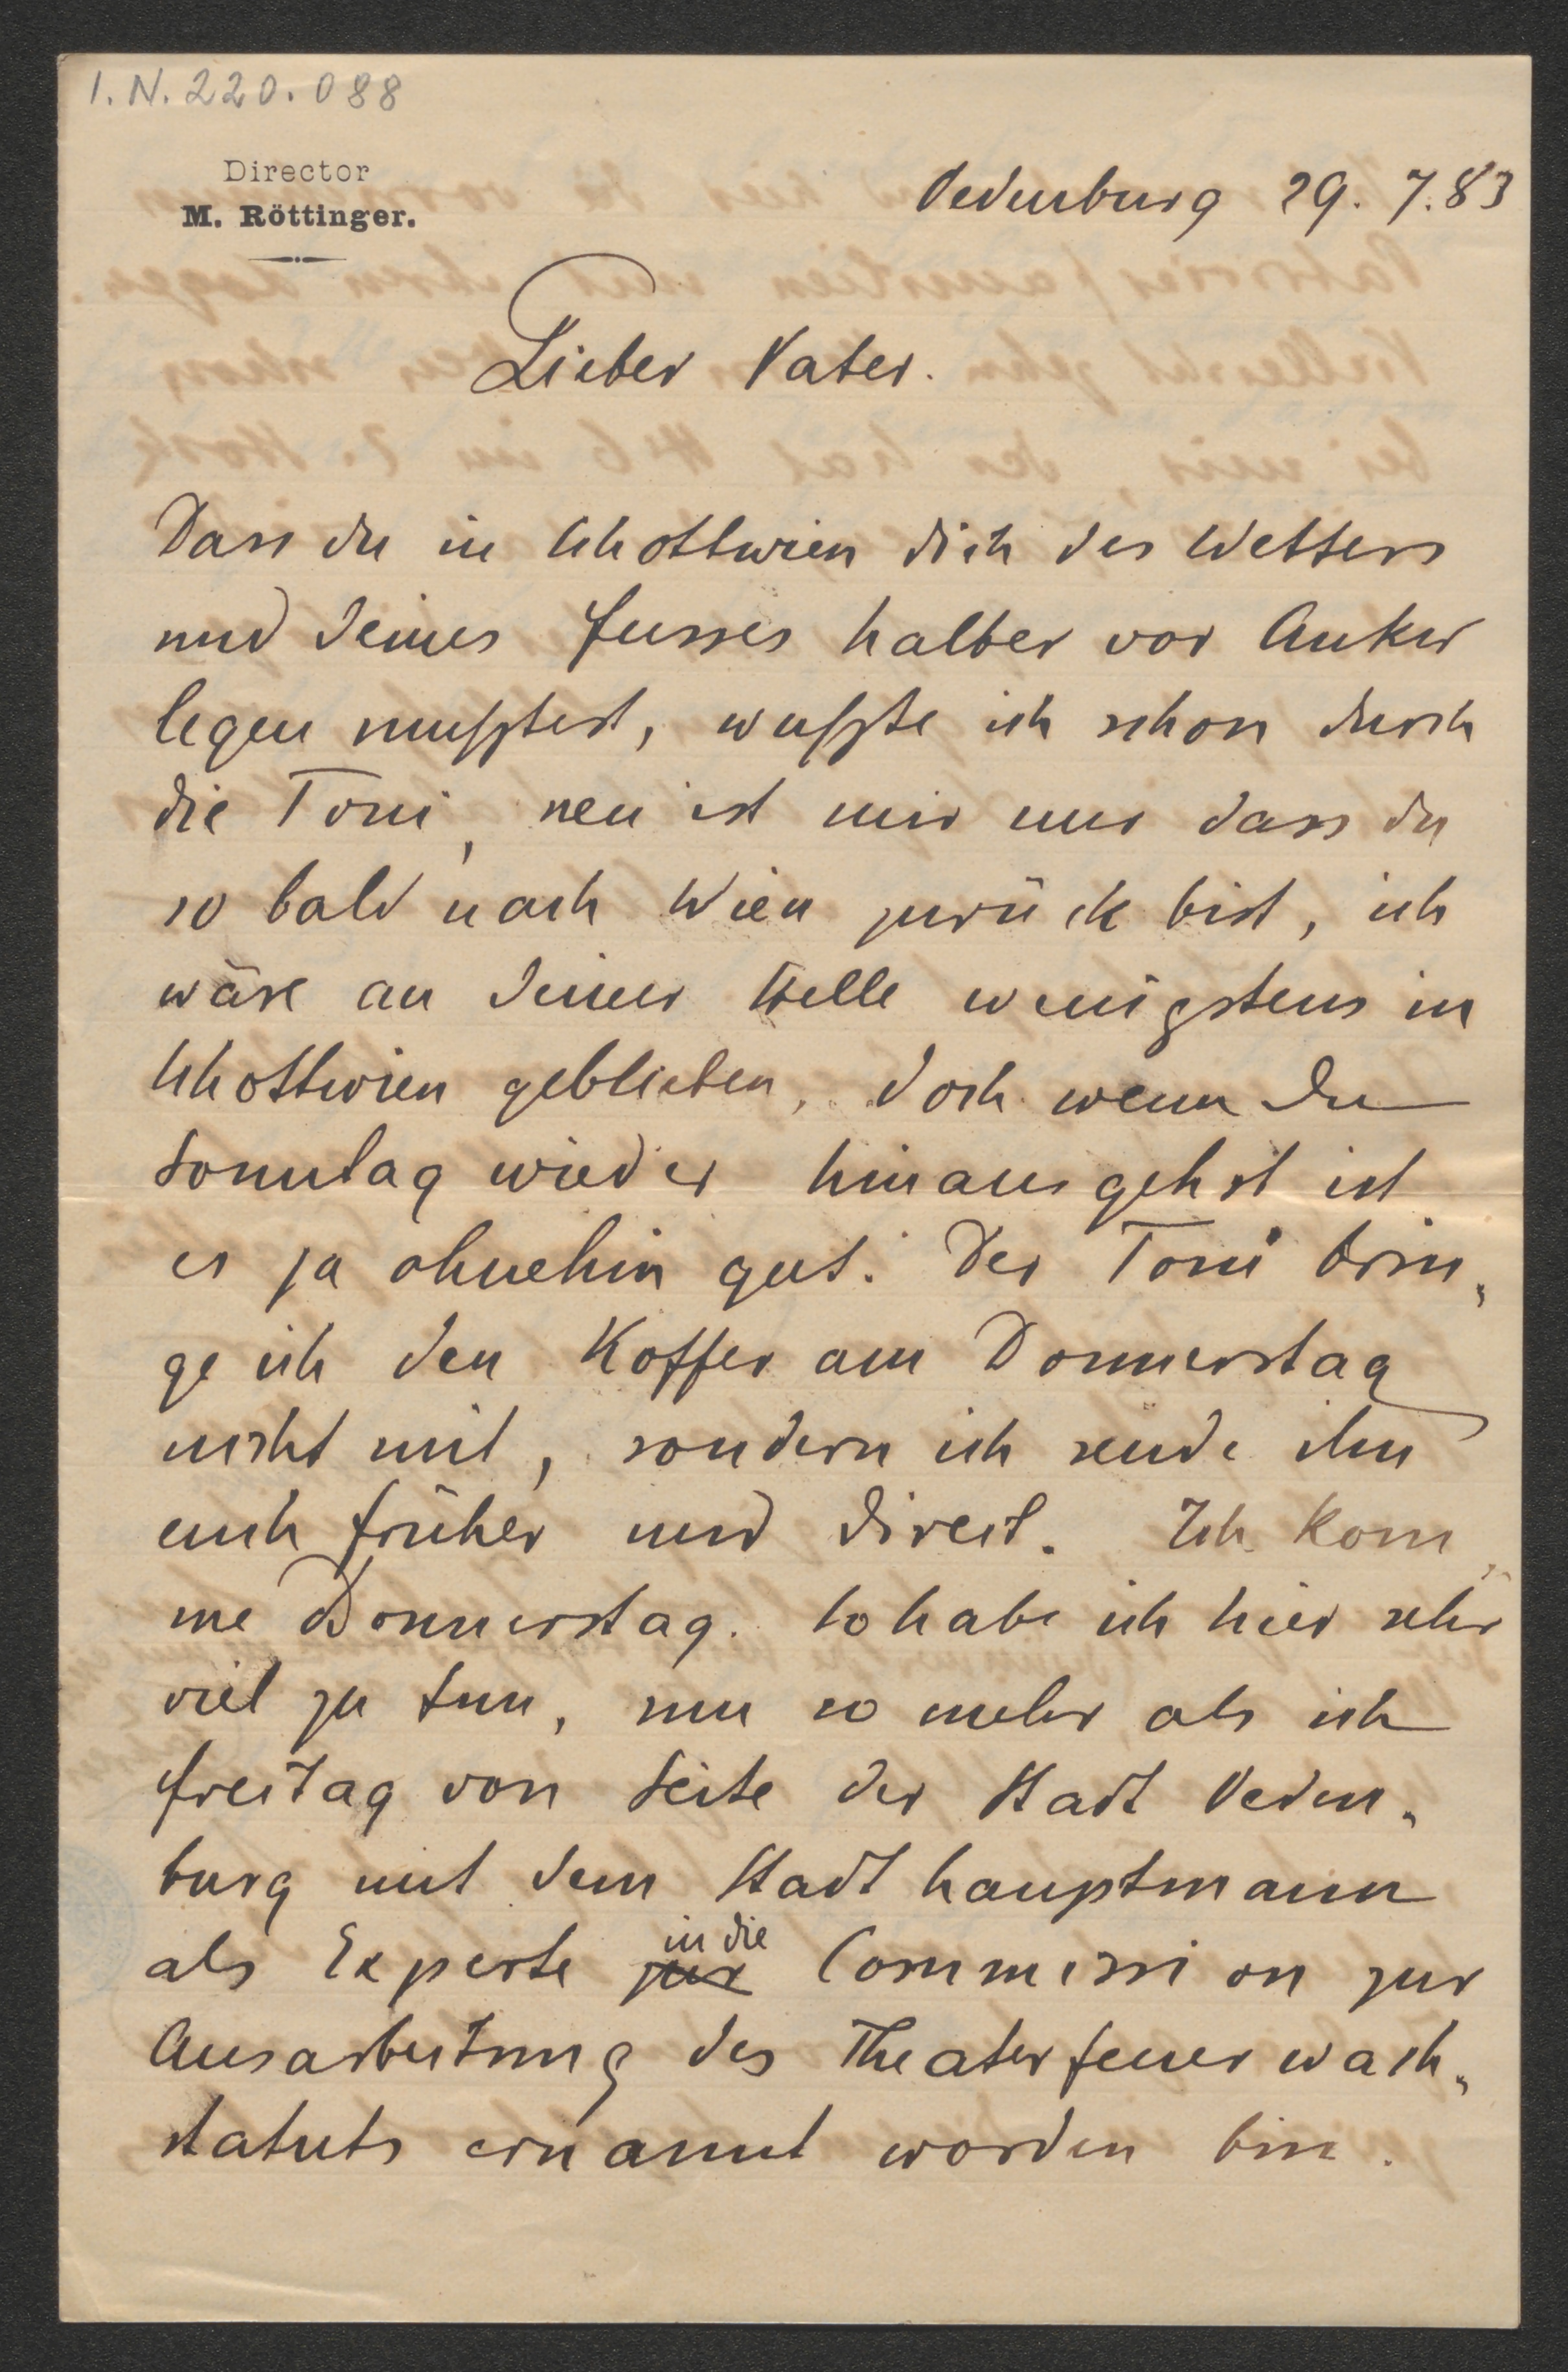 I.N. 220.088
Director
M. Röttinger.
Oedenburg 29. 7. 83
Lieber Vater.
Dass du in Schottwien dich des Wetters
und deines Fusses halber vor Anker
legen mußtest, wußte ich schon durch
die Toni, neu ist mir nur dass du
so bald nach Wien zurück bist, ich
wäre an deiner Stelle wenigstens in
Schottwien geblieben, doch wenn du
Sonntag wieder hinausgehst ist
es ja ohnehin gut. Der Toni brin„
ge ich den Koffer am Donnerstag
nicht mit, sondern ich sende ihn
euch früher und direct. Ich kom„
me Donnerstag. So habe ich hier sehr
viel zu tun, um so mehr als ich
Freitag von Seite der Stadt Oeden„
burg mit dem Stadthauptmann
als Experte zur in die Commission zur
Ausarbeitung des Theaterfeuerwach„
statuts ernannt worden bin.